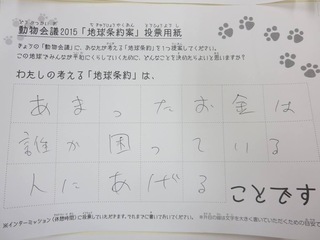 動物会議2015「地球条約案」投票用紙
きょうの「動物会議」に、あなたが考える「地球条約」を1つ提案してください。
この地球でみんなが平和にくらしていくために、どんなことを決めたらよいと思いますか?
わたしの考える「地球条約」は、
あまったお金は
誰か困っている
人にあげる
ことです
※インターミッション(休憩時間)に投票していただきます。それまでに書いておいてください。